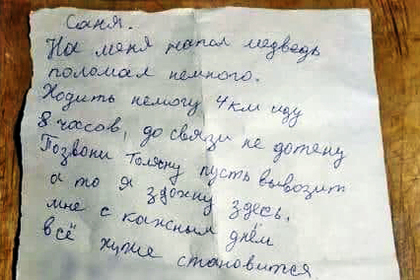 Саня.
На меня напал медведь
поломал немного.
Ходить немогу 4 км иду
8 часов, до связи не дотену
Позвони Толяну пусть вывозит
а то я здохну здесь.
мне с кажным днём
всё хуже становится